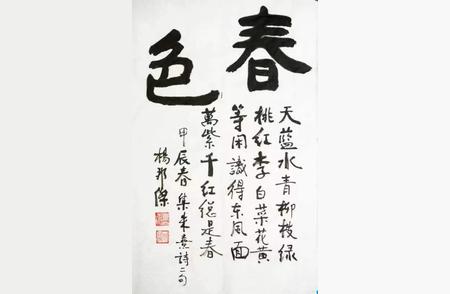 春色
天蓝水青柳枝绿
桃红李白菜花黄
等闲識得东风面
萬紫千红總是春
甲辰春集朱熹詩二句
楊邦傑